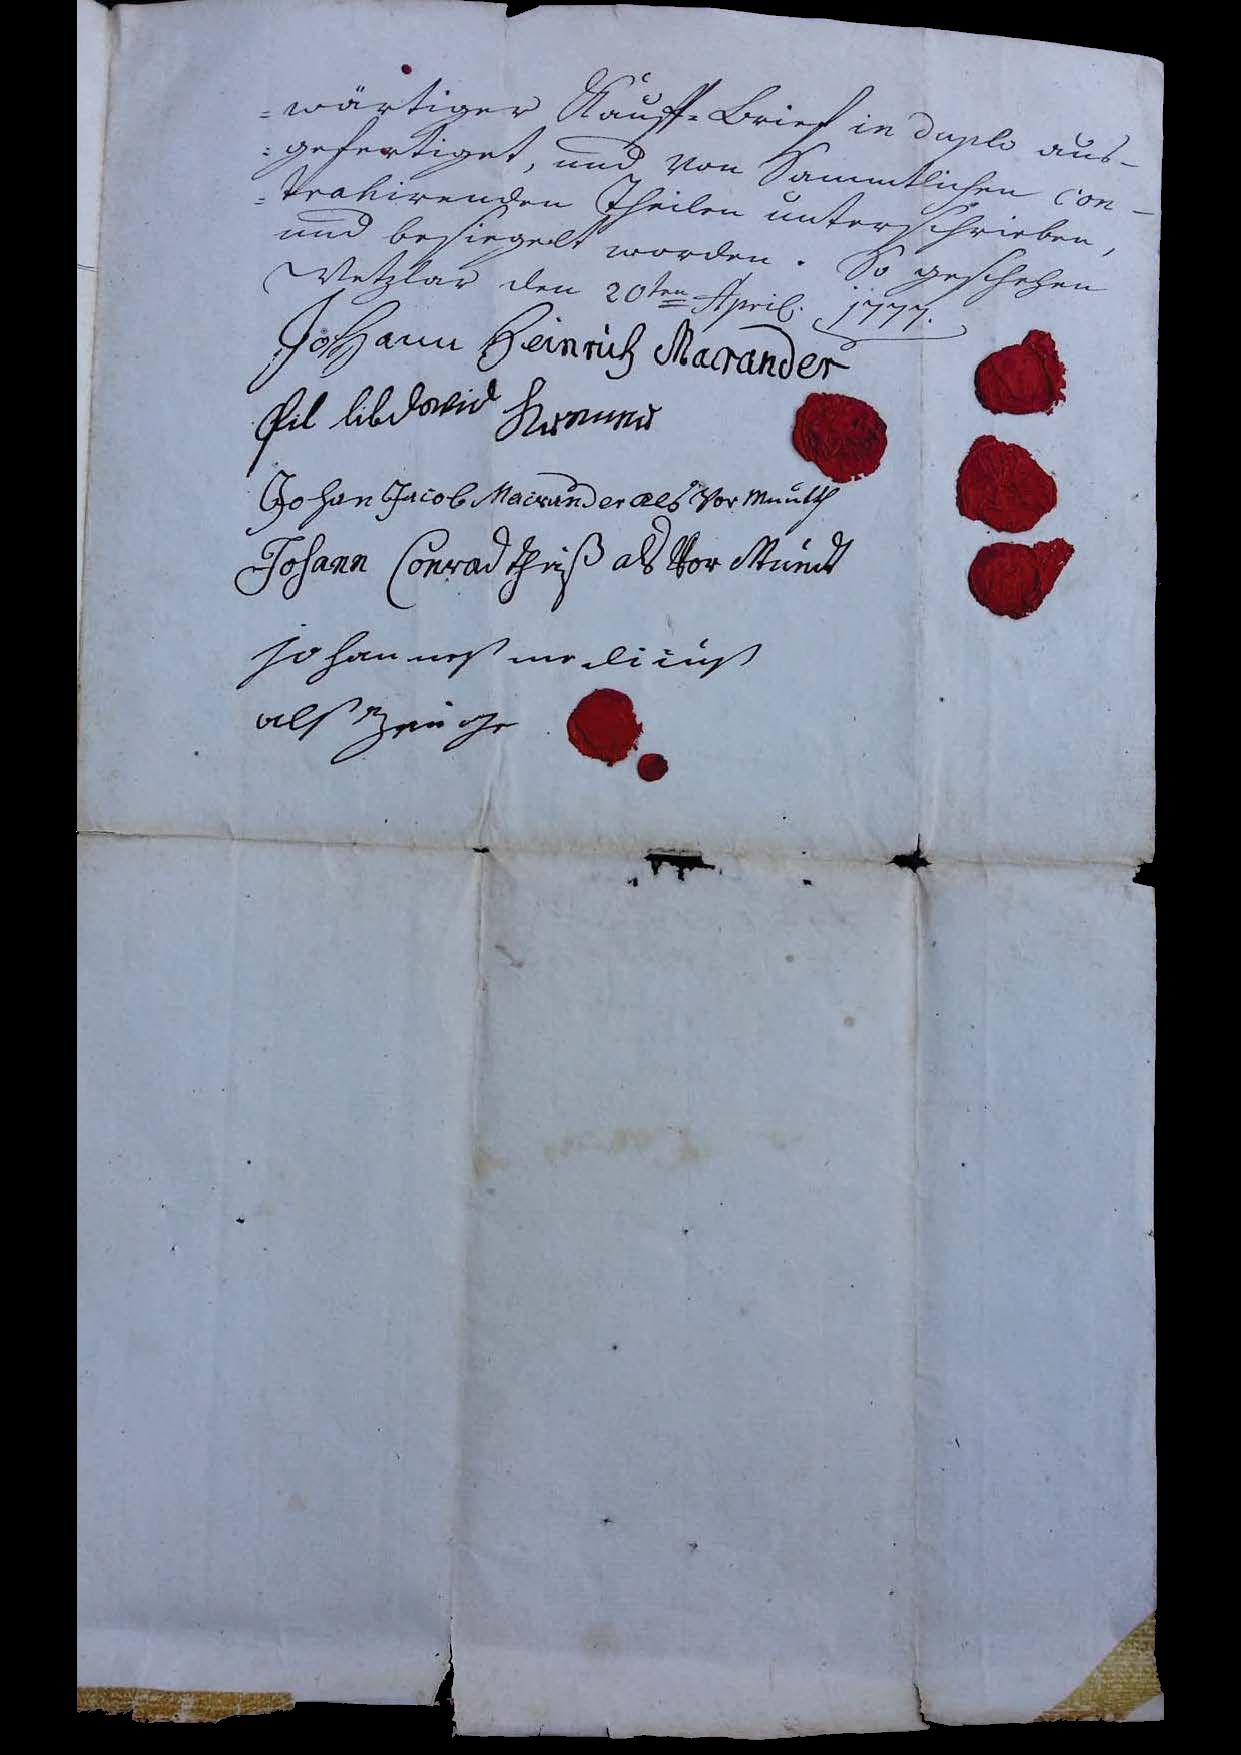 =wärtiger Kauff=Brief in duplo aus-
=gefertiget, und von Sammtlichen con-
=trahirenden Theilen unterschrieben,
und besiegelt worden. So geschehen
Wetzlar den 20ten April. 1777.
Johann Heinrich Macrander
Johan Jacob Macrander als Vor
Johann Conrad theiß als Vor Mundt
johanneß
alß zeuge